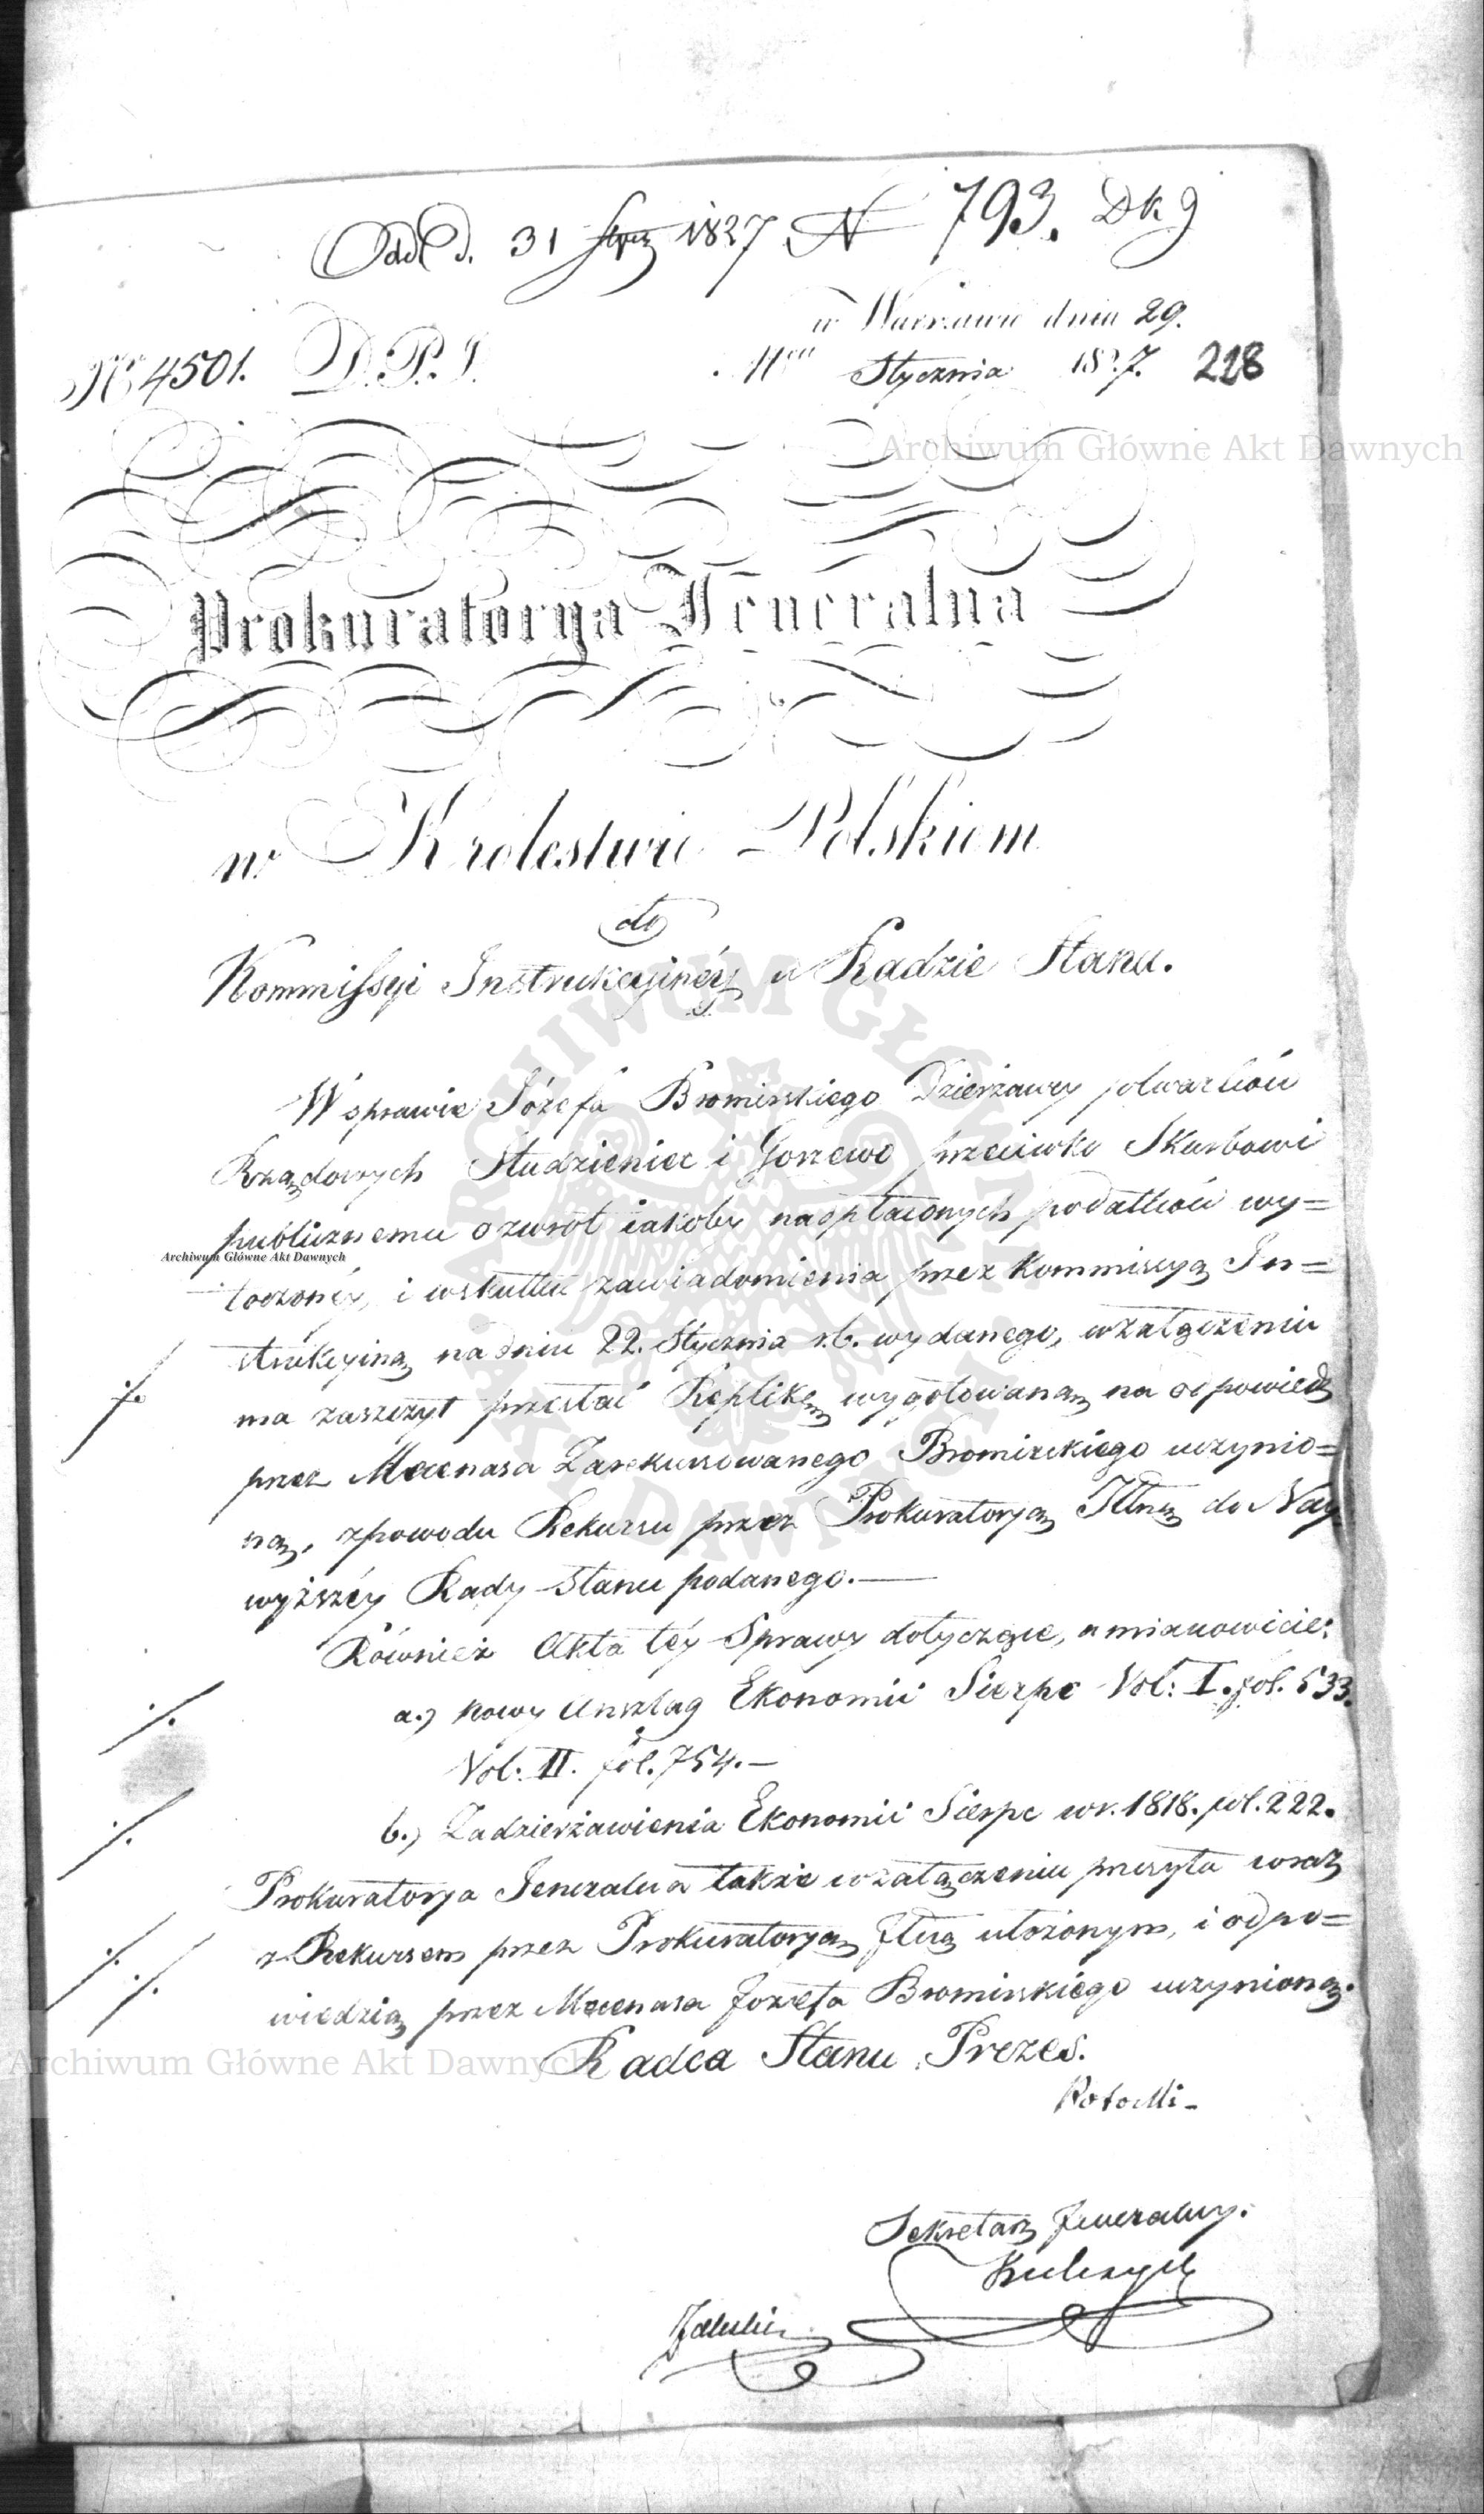 Odd d. 31 Stycz 1827 N 793. Dk 9
w Warszawie dnia 29.
No 4501. D.P.J. Mca Stycznia 1827. 228
Archiwum Główne Akt Dawnych
Prokuratorya Jeneralna
w Krolestwie Polskiem
do
Kommissyi Instrukcyinéy w Radzie Stanu.
W sprawie Józefa Bromirskiego Dzierżawcy folwarków
Rządowych Studzieniec i Gorzewo przeciwko Skarbowi
publicznemu o zwrot iakoby nadpłaconych podatków wy=
Archiwum Główne Akt Dawnych
toczonéy, i wskutku zawiadomienia przez Kommissyą In=
strukcyiną na dniu 22. Stycznia r.b. wydanego, w załączeniu
ma zaszczyt przesłać Replikę wygotowaną na odpowiedź
przez Mecenasa Zarekursowanego Bromirskiego uczynio=
ną, z powodu Rekursu przez Prokuratoryą Jlną do Nay
wyższéy Rady Stanu podanego.—
Również Akta téy Sprawy dotyczące, a mianowicie:
a.) nowy Anszlag Ekonomii Sierpc Vol: I. fol. 533.
Vol: II. fol. 754.—
b.) Zadzierżawienia Ekonomii Sierpc w r. 1818. fol. 222.
Prokuratorya Jeneralna także w załączeniu przesyła wraz
z Rekursem przez Prokuratoryą Jlną ułożonym, i odpo=
wiedzią przez Mecenasa Jozefa Bromirskiego uczynioną.
Archiwum Główne Akt Dawnych
Radca Stanu Prezes.
Sekretarz Jeneralny.
ARCHIWUM GŁÓWNE AKT DAWNYCH